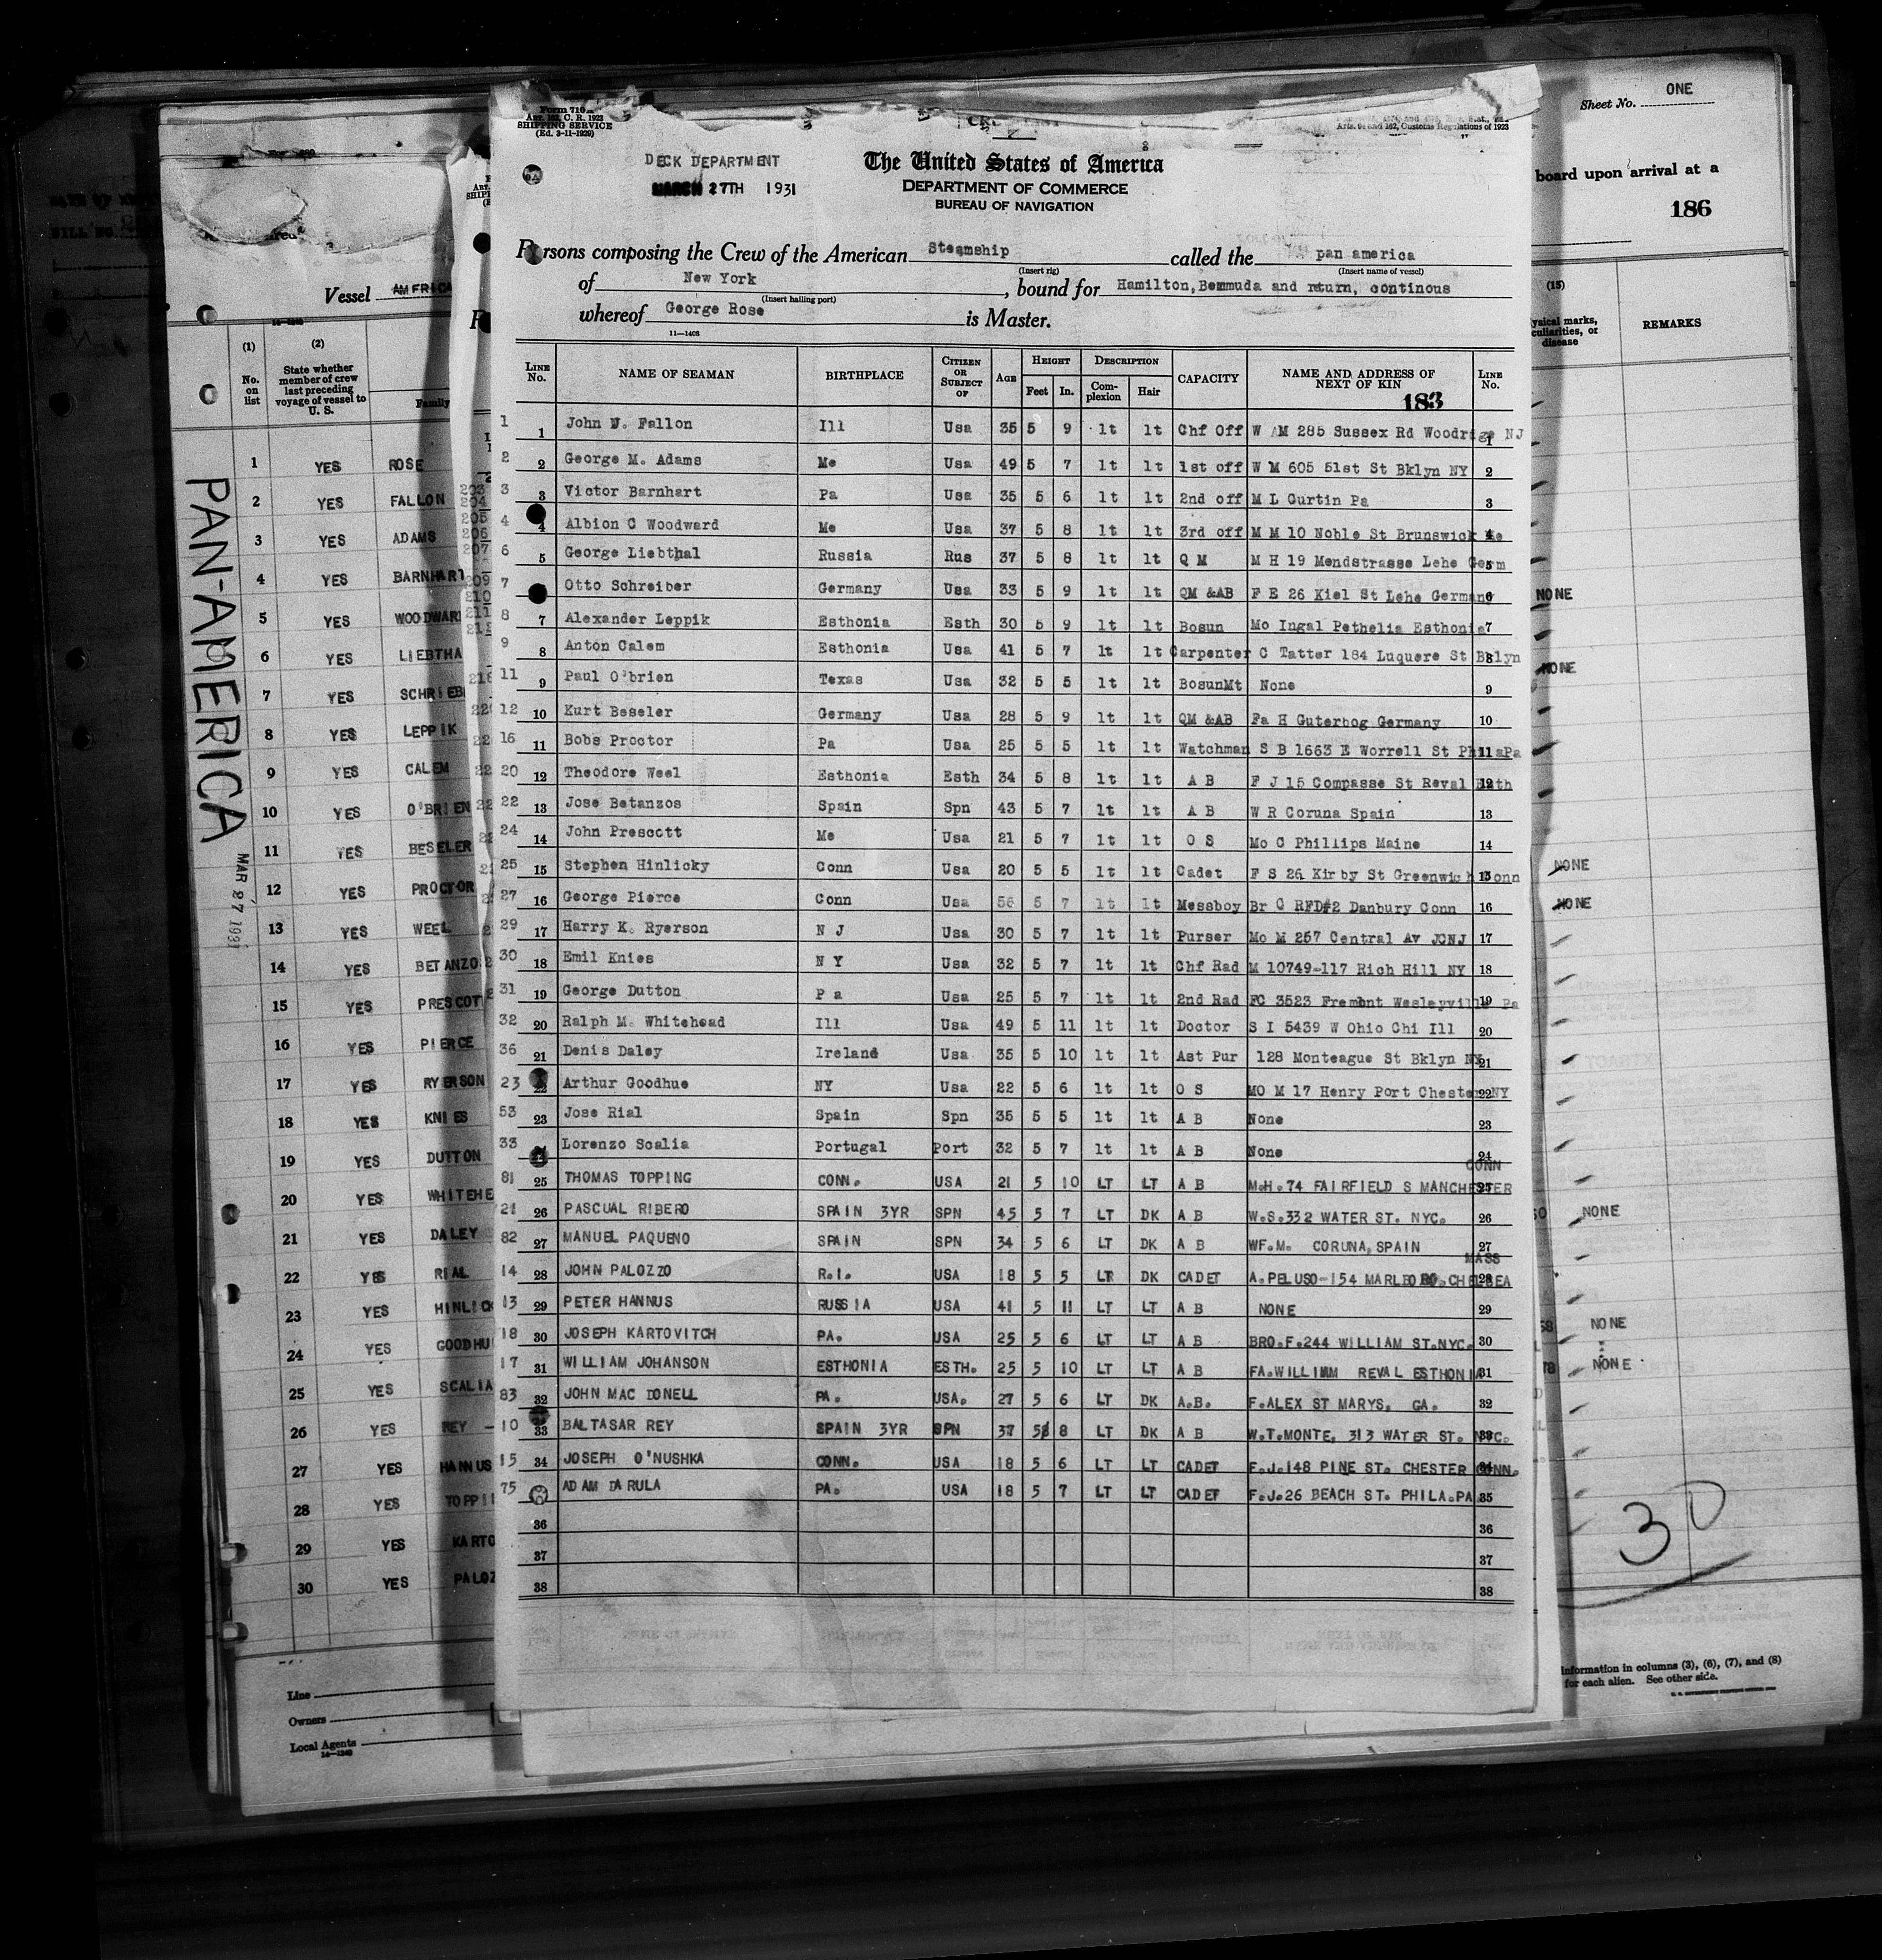 Form 710
Art. 162, C. R. 1923
SHIPPING SERVICE
(Ed. 3-11-1929)
Arts. 91 and 162, Customs Regulations of 1923
DECK DEPARTMENT
MARCH 27TH 1931
The United States of America
DEPARTMENT OF COMMERCE
BUREAU OF NAVIGATION
Persons composing the Crew of the American Steamship called the pan america
(Insert rig) (Insert name of vessel)
of New York, bound for Hamilton, Bermuda and return, continous
(Insert hailing port)
whereof George Rose is Master.
11—1408
LINE No. NAME OF SEAMAN BIRTHPLACE CITIZEN OR SUBJECT OF AGE HEIGHT Feet In. DESCRIPTION Complexion Hair CAPACITY NAME AND ADDRESS OF NEXT OF KIN LINE No.
183
1 1 John W. Fallon Ill Usa 35 5 9 lt lt Chf Off W AM 285 Sussex Rd Woodrige NJ 1
2 2 George M. Adams Me Usa 49 5 7 lt lt 1st off W M 605 51st St Bklyn NY 2
3 3 Victor Barnhart Pa Usa 35 5 6 lt lt 2nd off M L Curtin Pa 3
4 4 Albion C Woodward Me Usa 37 5 8 lt lt 3rd off M M 10 Noble St Brunswick Me 4
6 5 George Liebthal Russia Rus 37 5 8 lt lt Q M M H 19 Mendstrasse Lehe Germ 5
7 Otto Schreiber Germany Usa 33 5 9 lt lt QM &AB F E 26 Kiel St Lehe Germany 6
8 7 Alexander Leppik Esthonia Esth 30 5 9 lt lt Bosun Mo Ingal Pethelia Esthonia 7
9 8 Anton Calem Esthonia Usa 41 5 7 lt lt Carpenter C Tatter 184 Luquere St Bklyn 8
11 9 Paul O'brien Texas Usa 32 5 5 lt lt BosunMt None 9
12 10 Kurt Beseler Germany Usa 28 5 9 lt lt QM &AB Fa H Guterbog Germany 10
16 11 Bobs Proctor Pa Usa 25 5 5 lt lt Watchman S B 1663 E Worrell St PhilaPa 11
20 12 Theodore Weel Esthonia Esth 34 5 8 lt lt A B F J 15 Compasse St Reval Esth 12
22 13 Jose Betanzos Spain Spn 43 5 7 lt lt A B W R Coruna Spain 13
24 14 John Prescott Me Usa 21 5 7 lt lt O S Mo C Phillips Maine 14
25 15 Stephen Hinlicky Conn Usa 20 5 5 lt lt Cadet F S 26 Kirby St Greenwich Conn 15
27 16 George Pierce Conn Usa 56 5 7 lt lt Messboy Br C RFD#2 Danbury Conn 16
29 17 Harry K. Ryerson N J Usa 30 5 7 lt lt Purser Mo M 257 Central Av JCNJ 17
30 18 Emil Knies N Y Usa 32 5 7 lt lt Chf Rad M 10749-117 Rich Hill NY 18
31 19 George Dutton P a Usa 25 5 7 lt lt 2nd Rad FC 3523 Fremont Wesleyville Pa 19
32 20 Ralph M. Whitehead Ill Usa 49 5 11 lt lt Doctor S I 5439 W Ohio Chi Ill 20
36 21 Denis Daley Ireland Usa 35 5 10 lt lt Ast Pur 128 Monteague St Bklyn NY 21
23 22 Arthur Goodhue NY Usa 22 5 6 lt lt O S MO M 17 Henry Port Chester NY 22
53 23 Jose Rial Spain Spn 35 5 5 lt lt A B None 23
33 24 Lorenzo Scalia Portugal Port 32 5 7 lt lt A B None 24
81 25 THOMAS TOPPING CONN. USA 21 5 10 LT LT A B M.H.74 FAIRFIELD S MANCHESTER CONN 25
21 26 PASCUAL RIBERO SPAIN 3YR SPN 45 5 7 LT DK A B W.S.332 WATER ST. NYC. 26
82 27 MANUEL PAQUENO SPAIN SPN 34 5 6 LT DK A B WF.M. CORUNA, SPAIN 27
14 28 JOHN PALOZZO R.I. USA 18 5 5 LT DK CADET A.PELUSO-154 MARLBORO.CHELSEA MASS 28
13 29 PETER HANNUS RUSSIA USA 41 5 11 LT LT A B NONE 29
18 30 JOSEPH KARTOVITCH PA. USA 25 5 6 LT LT A B BRO.F.244 WILLIAM ST.NYC. 30
17 31 WILLIAM JOHANSON ESTHONIA ESTH. 25 5 10 LT LT A B FA.WILLIMM REVAL ESTHONIA 31
83 32 JOHN MAC DONELL PA. USA. 27 5 6 LT DK A.B. F.ALEX ST MARYS, GA. 32
10 33 BALTASAR REY SPAIN 3YR SPN 37 5 8 LT DK A B W.T.MONTE, 313 WATER ST. NYC. 33
15 34 JOSEPH O'NUSHKA CONN. USA 18 5 6 LT LT CADET F.J.148 PINE ST. CHESTER CONN. 34
75 ADAM DARULA PA. USA 18 5 7 LT LT CADET F.J.26 BEACH ST. PHILA.PA 35
36 36
37 37
38 38
Vessel AMERICA
(1) No. on list
(2) State whether member of crew last preceding voyage of vessel to U. S.
Family
PAN-AMERICA
MAR 27 1931
1 YES ROSE
2 YES FALLON
3 YES ADAMS
4 YES BARNHART
5 YES WOODWAR
6 YES LIEBTHA
7 YES SCHRIEB
8 YES LEPPIK
9 YES CALEM
10 YES O'BRIEN
11 YES BESELER
12 YES PROCTOR
13 YES WEEL
14 YES BETANZO
15 YES PRESCOT
16 YES PIERCE
17 YES RYERSON
18 YES KNIES
19 YES DUTTON
20 YES WHITEHE
21 YES DALEY
22 YES RIAL
23 YES HINLICK
24 YES GOODHU
25 YES SCALIA
26 YES REY
27 YES HANNUS
28 YES TOPPI
29 YES KARTO
30 YES PALOZ
Line
Owners
Local Agents
14—1240
Sheet No. ONE
board upon arrival at a
186
(15)
REMARKS
NONE
NONE
NONE
NONE
NONE
NONE
NONE
30
information in columns (3), (6), (7), and (8)
for each alien. See other side.